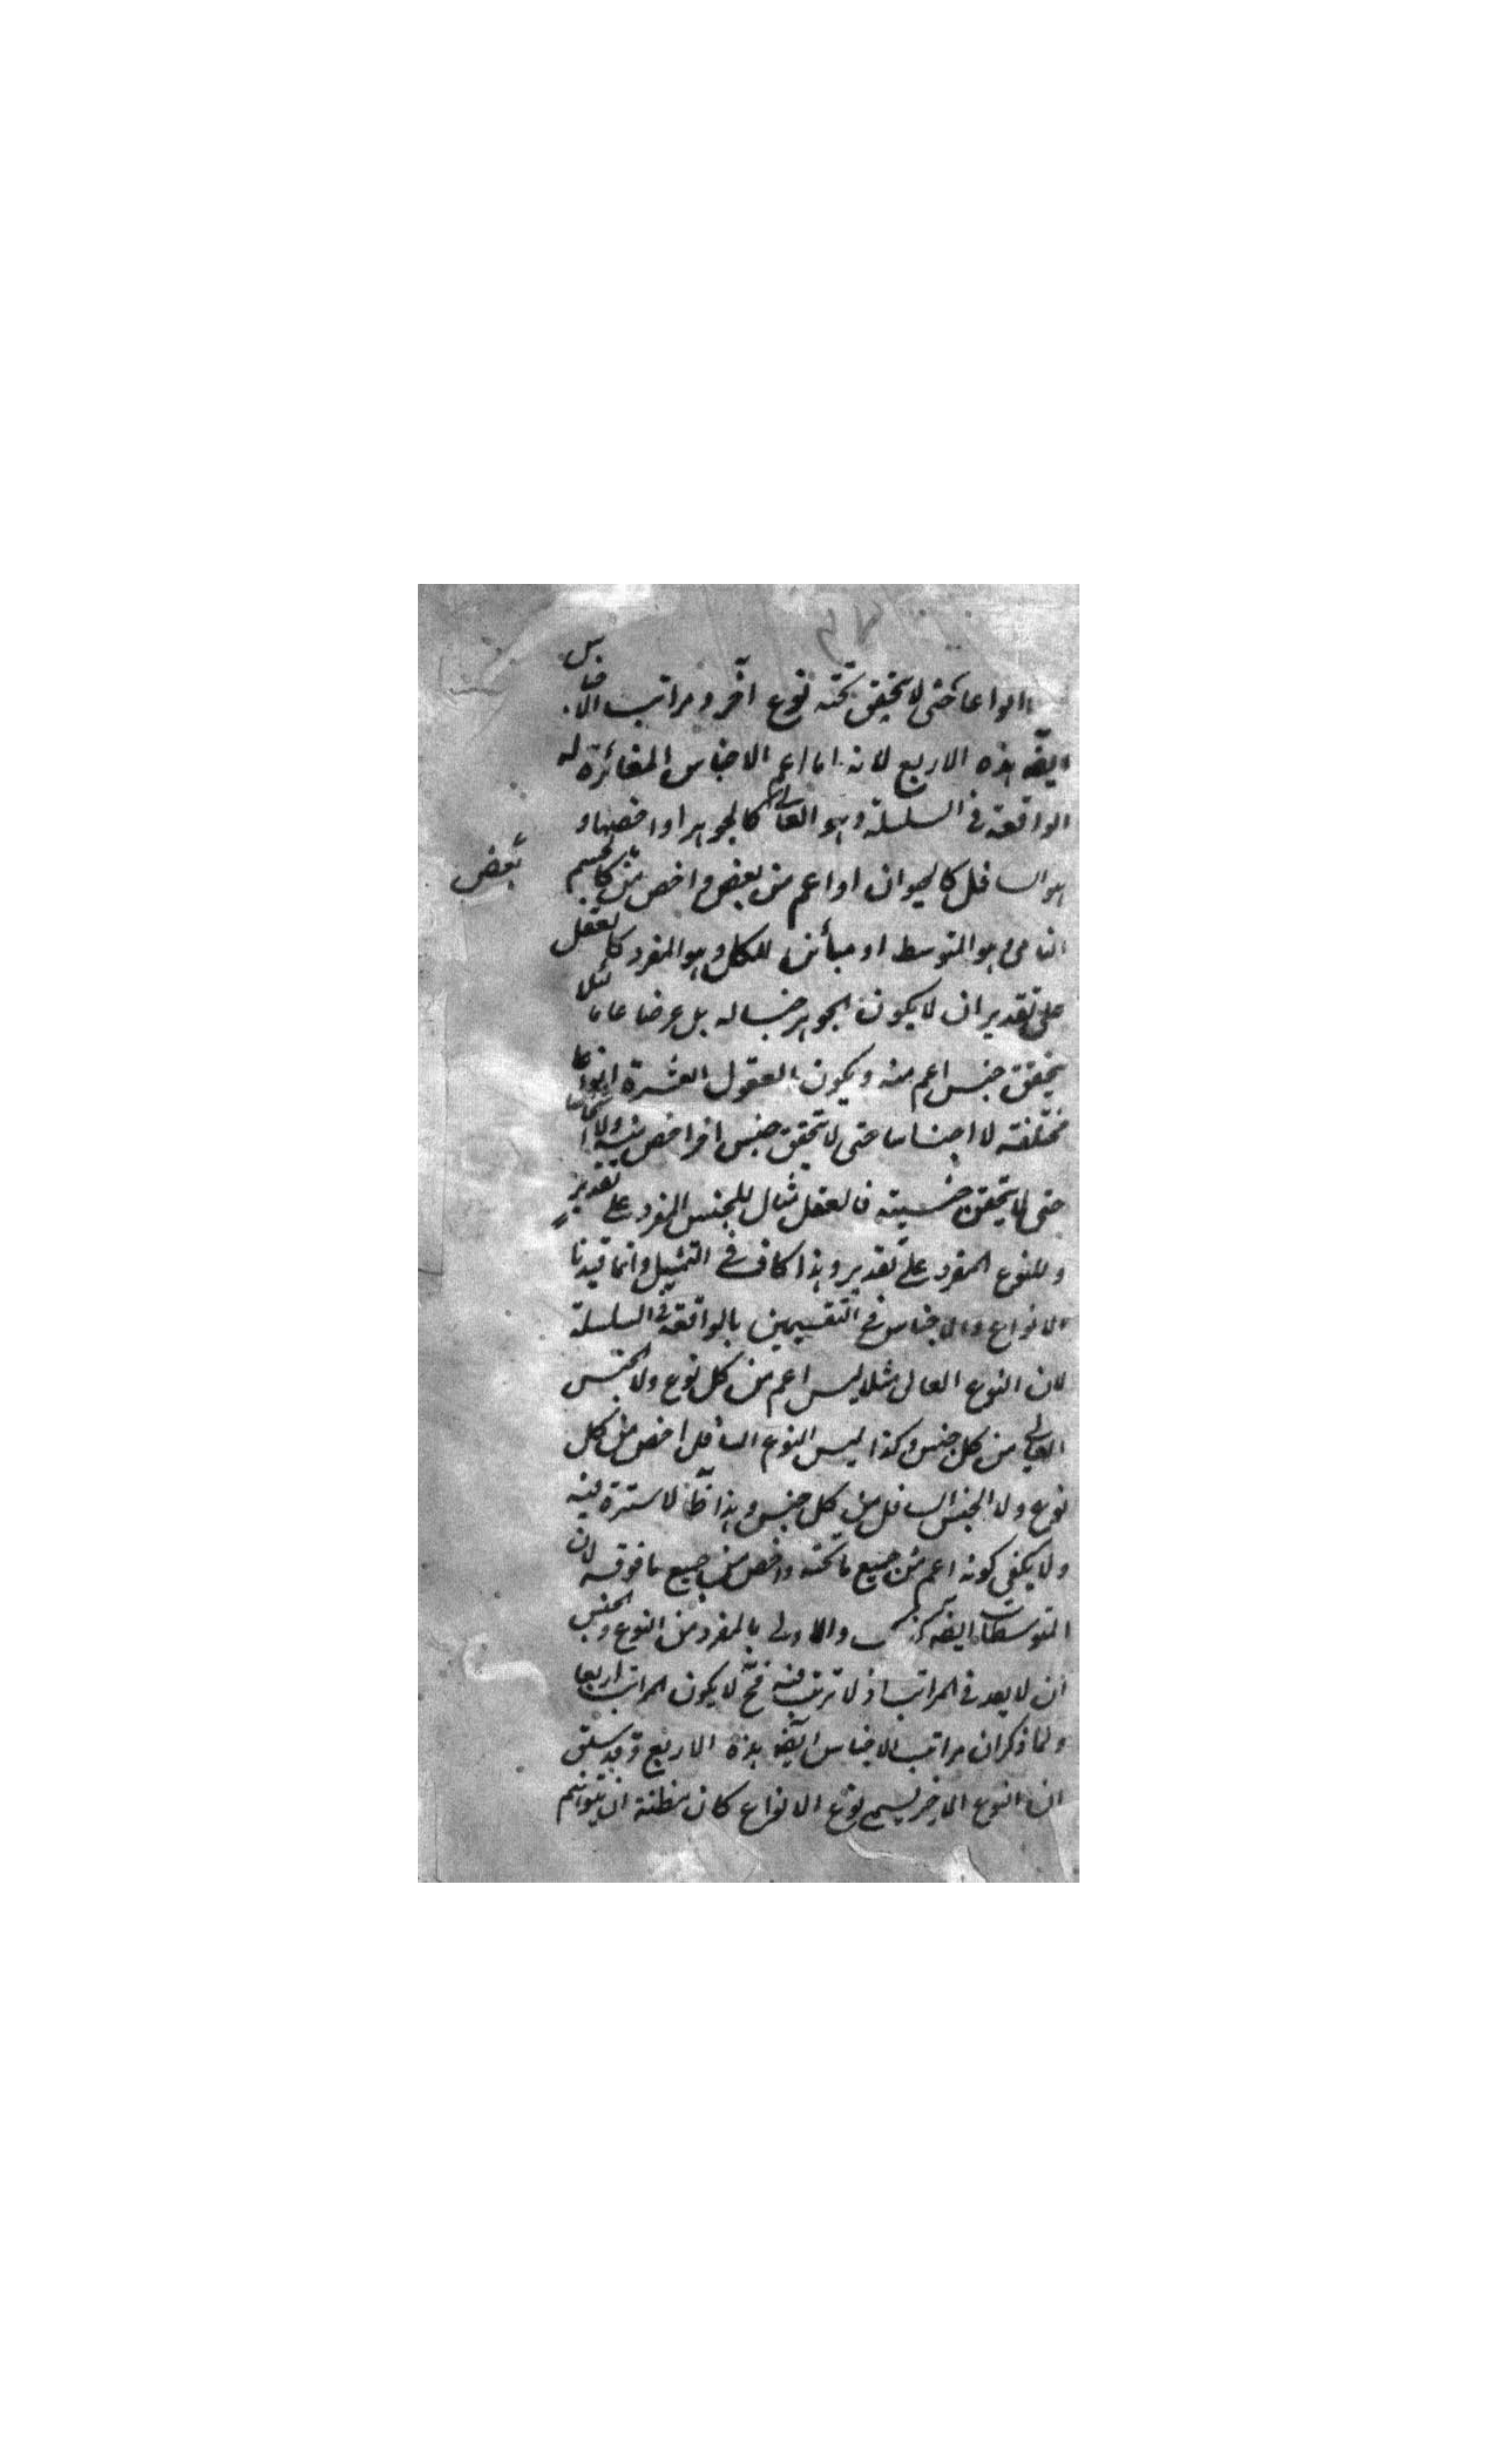 انواعا حتى لا يتحقق تحته نوع آخر ومراتب الاجناس
ايضه هذه الاربع لانه اما اعم الاجناس المغائرة له
الواقعة في السلسلة وهو العالى كالجوهر او اخصها و
هو السافل كالحيوان او اعم من بعض واخص من كالجسم
بعض
النامى وهو المتوسط او مبائن للكل وهو المفرد كالعقل
على تقدير ان لا يكون الجوهر جنسا له بل عرضا عاما لئلا
يتحقق جنس اعم منه ويكون العقول العشرة انواعا
مختلفة لا اجناسا حتى لا يتحقق جنس اخر اخص منه ولا
حتى لا يتحقق جنسيته فالعقل مثال للجنس المفرد على تقدير
وللنوع المفرد على تقدير وهذا كاف في التمثيل وانما قيدنا
الانواع والاجناس في التقسيمين بالواقعة في السلسلة
لان النوع العالى مثلا ليس اعم من كل نوع ولا الجنس
العالى من كل جنس وكذا ليس النوع السافل اخص من كل
نوع ولا الجنس السافل من كل جنس وهذا ظ لا سترة فيه
ولا يكفى كونه اعم من جميع ما تحته واخص من جميع ما فوقه لان
المتوسطات ايضه والاولى بالمفرد من النوع والجنس
ان لا يعد في المراتب اذ لا ترتب فيه فح لا يكون المراتب اربعا
ولما ذكر ان مراتب الاجناس ايضه هذه الاربع وقد سبق
ان النوع الاخير يسمى نوع الانواع كان مظنة ان يتوهم